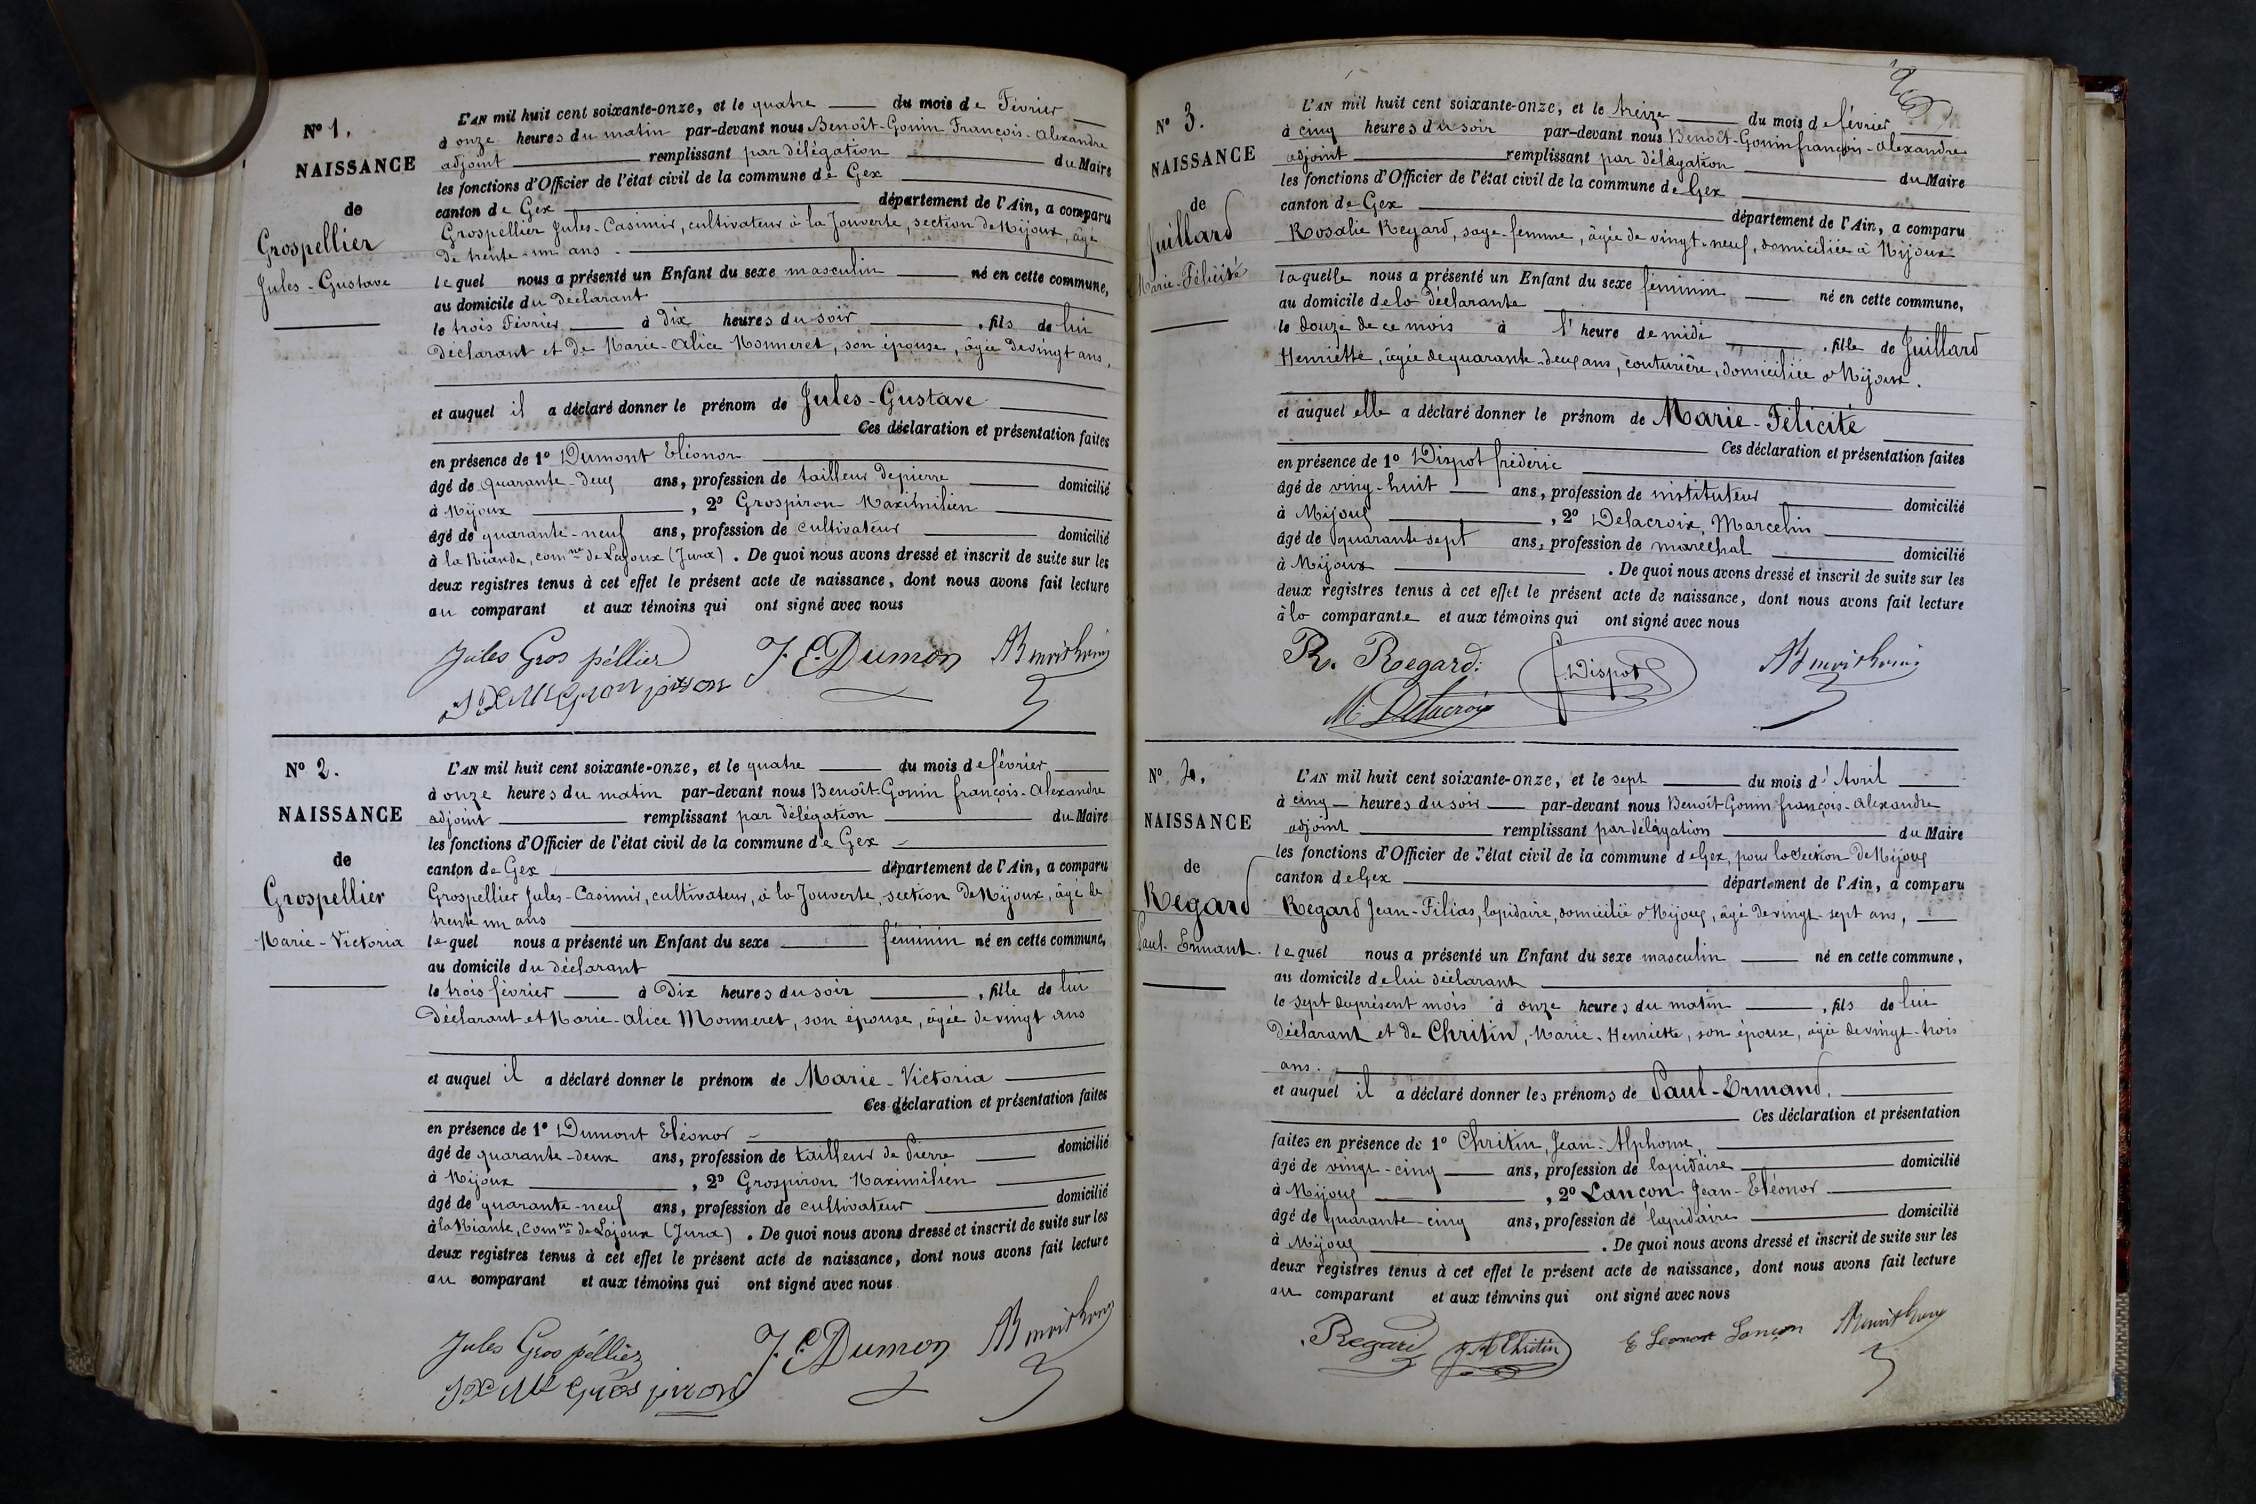 Nº 1.
NAISSANCE
de
Grospellier
Jules-Gustave
L'AN mil huit cent soixante-onze, et le quatre du mois de Février
à onze heures du matin par-devant nous Benoît-Gonin François-Alexandre
adjoint remplissant par délégation du Maire
les fonctions d'Officier de l'état civil de la commune de Gex
canton de Gex département de l'Ain, a comparu
Grospellier Jules-Casimir, cultivateur à la Jouverte, section de Mijoux, âgé
de trente-un ans.
lequel nous a présenté un Enfant du sexe masculin né en cette commune,
au domicile du déclarant
le trois Février à dix heures du soir, fils de lui
déclarant et de Marie-Alice Monneret, son épouse, âgée de vingt ans.
et auquel il a déclaré donner le prénom de Jules-Gustave
Ces déclaration et présentation faites
en présence de 1º Dumont Eléonor
âgé de quarante-deux ans, profession de tailleur de pierre domicilié
à Mijoux, 2º Grospiron Maximilien
âgé de quarante-neuf ans, profession de cultivateur domicilié
à la Biande, comne de Lajoux (Jura). De quoi nous avons dressé et inscrit de suite sur les
deux registres tenus à cet effet le présent acte de naissance, dont nous avons fait lecture
au comparant et aux témoins qui ont signé avec nous
Jules Gros péllier J. E. Dumon
Nº 2.
NAISSANCE
de
Grospellier
Marie-Victoria
L'AN mil huit cent soixante-onze, et le quatre du mois de février
à onze heures du matin par-devant nous Benoît-Gonin françois-Alexandre
adjoint remplissant par délégation du Maire
les fonctions d'Officier de l'état civil de la commune de Gex
canton de Gex département de l'Ain, a comparu
Grospellier Jules-Casimir, cultivateur, à la Jouverte, section de Mijoux, âgé de
trente un ans
lequel nous a présenté un Enfant du sexe féminin né en cette commune,
au domicile du déclarant
le trois février à dix heures du soir, fille de lui
déclarant et Marie-Alice Monneret, son épouse, âgée de vingt ans
et auquel il a déclaré donner le prénom de Marie-Victoria
Ces déclaration et présentation faites
en présence de 1º Dumont Eléonor
âgé de quarante-deux ans, profession de tailleur de Pierre domicilié
à Mijoux, 2º Grospiron Maximilien
âgé de quarante-neuf ans, profession de cultivateur domicilié
à la Biante, comne de Lajoux (Jura). De quoi nous avons dressé et inscrit de suite sur les
deux registres tenus à cet effet le présent acte de naissance, dont nous avons fait lecture
au comparant et aux témoins qui ont signé avec nous
Jules Gros péllier J. E. Dumon
Nº 3.
NAISSANCE
de
Juillard
Marie-Félicité
L'AN mil huit cent soixante-onze, et le treize du mois de février
à cinq heures du soir par-devant nous Benoît-Gonin françois-Alexandre
adjoint remplissant par délégation du Maire
les fonctions d'Officier de l'état civil de la commune de Gex
canton de Gex département de l'Ain, a comparu
Rosalie Regard, sage-femme, âgée de vingt-neuf, domiciliée à Mijoux
laquelle nous a présenté un Enfant du sexe féminin né en cette commune,
au domicile de la déclarante
le douze de ce mois à l'heure de midi, fille de Juillard
Henriette, âgée de quarante-deux ans, couturière, domiciliée à Mijoux.
et auquel elle a déclaré donner le prénom de Marie-Félicité
Ces déclaration et présentation faites
en présence de 1º Dispot frédéric
âgé de ving-huit ans, profession de instituteur domicilié
à Mijoux, 2º Delacroix Marcelin
âgé de quarante sept ans, profession de maréchal domicilié
à Mijoux. De quoi nous avons dressé et inscrit de suite sur les
deux registres tenus à cet effet le présent acte de naissance, dont nous avons fait lecture
à la comparante et aux témoins qui ont signé avec nous
R. Regard. Dispot
M. Delacroix
Nº 4.
NAISSANCE
de
Regard
Paul-Ermant.
L'AN mil huit cent soixante-onze, et le sept du mois d'Avril
à cinq heures du soir par-devant nous Benoît-Gonin françois-Alexandre
adjoint remplissant par délégation du Maire
les fonctions d'Officier de l'état civil de la commune de Gex, pour la section de Mijoux
canton de Gex département de l'Ain, a comparu
Regard Jean-Filias, lapidaire, domicilié à Mijoux, âgé de vingt-sept ans,
lequel nous a présenté un Enfant du sexe masculin né en cette commune,
au domicile de lui déclarant
le sept du présent mois à onze heures du matin, fils de lui
déclarant et de Chritin, Marie-Henriette, son épouse, âgée de vingt-trois
ans.
et auquel il a déclaré donner les prénoms de Paul-Ermand.
Ces déclaration et présentation
faites en présence de 1º Chritin, Jean-Alphonse
âgé de vingt-cinq ans, profession de lapidaire domicilié
à Mijoux, 2º Lançon Jean-Eléonor
âgé de quarante-cinq ans, profession de lapidaire domicilié
à Mijoux. De quoi nous avons dressé et inscrit de suite sur les
deux registres tenus à cet effet le présent acte de naissance, dont nous avons fait lecture
au comparant et aux témoins qui ont signé avec nous
Regard J A Chritin Lançon